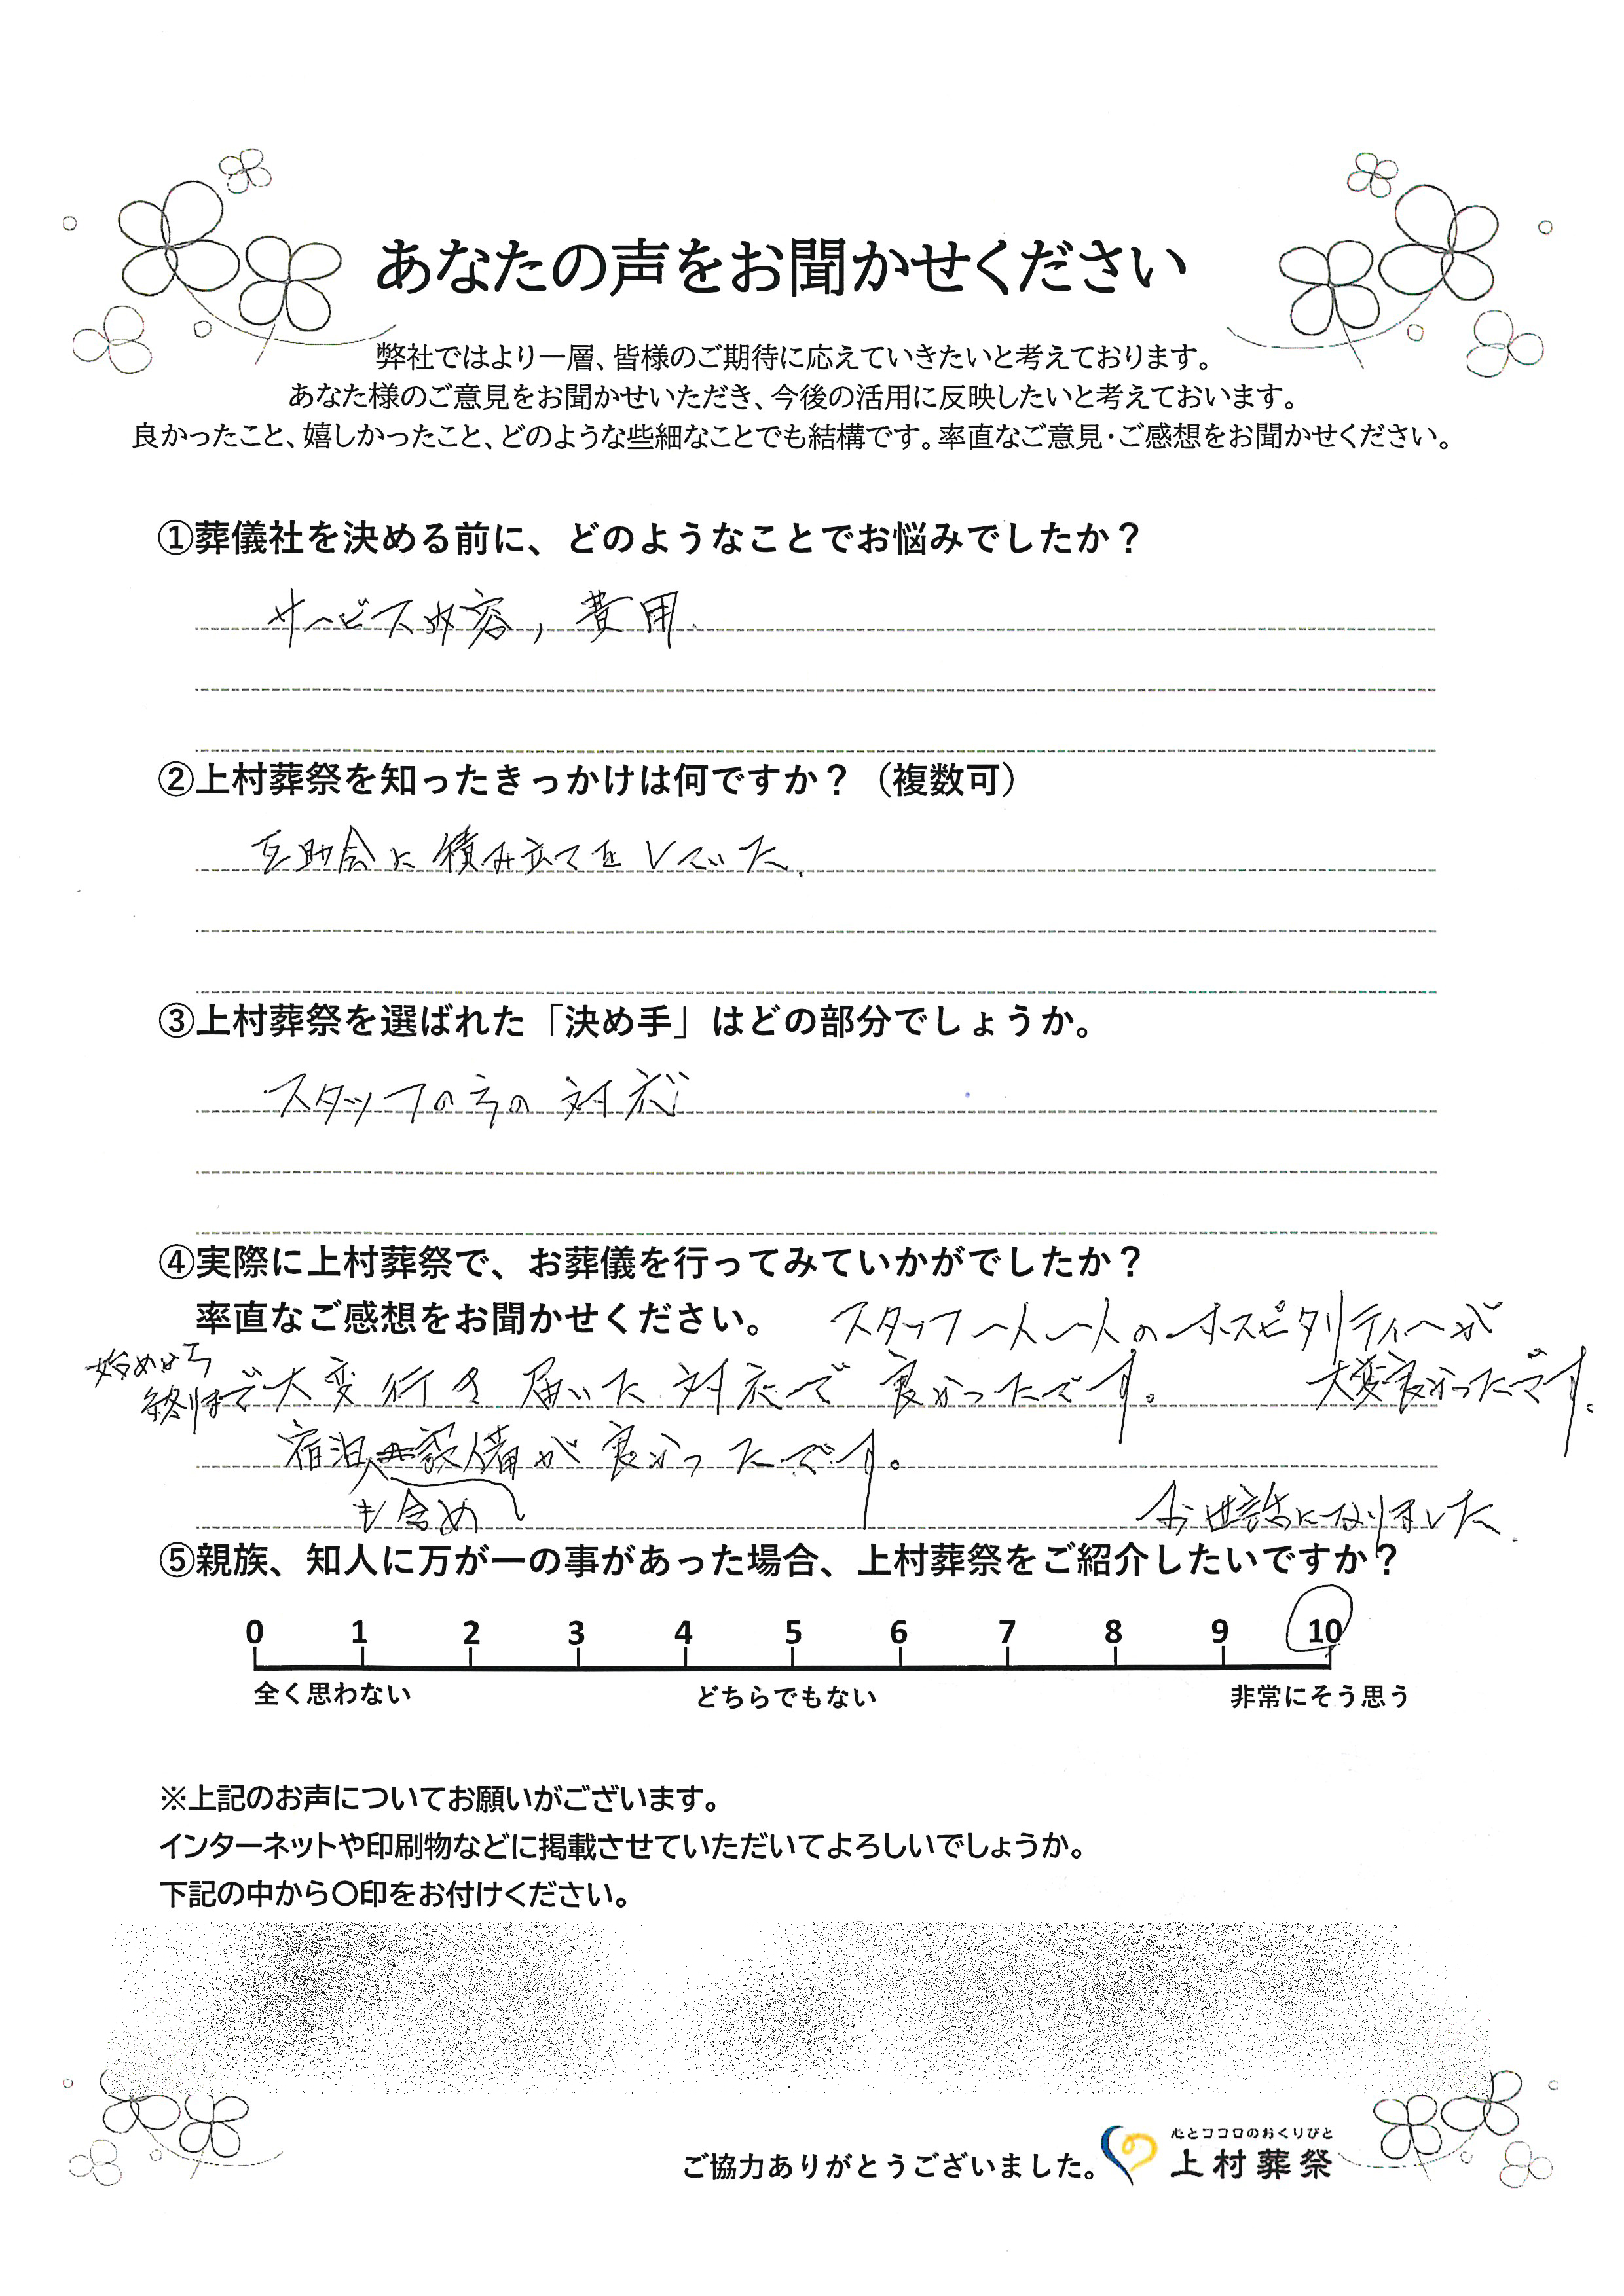 あなたの声をお聞かせください
弊社ではより一層、皆様のご期待に応えていきたいと考えております。
あなた様のご意見をお聞かせいただき、今後の活用に反映したいと考えておいます。
良かったこと、嬉しかったこと、どのような些細なことでも結構です。率直なご意見・ご感想をお聞かせください。
①葬儀社を決める前に、どのようなことでお悩みでしたか？
サービス内容，費用．
②上村葬祭を知ったきっかけは何ですか？（複数可）
互助会に積み立てをしていた．
③上村葬祭を選ばれた「決め手」はどの部分でしょうか。
スタッフの方の対応
④実際に上村葬祭で、お葬儀を行ってみていかがでしたか？
率直なご感想をお聞かせください。
スタッフ一人一人のホスピタリティーが
大変良かったです。
始めから
終りまで大変行き届いた対応で良かったです。
宿泊も含め設備が良かったです。
お世話になりました．
⑤親族、知人に万が一の事があった場合、上村葬祭をご紹介したいですか？
0 1 2 3 4 5 6 7 8 9 10
全く思わない どちらでもない 非常にそう思う
※上記のお声についてお願いがございます。
インターネットや印刷物などに掲載させていただいてよろしいでしょうか。
下記の中から〇印をお付けください。
ご協力ありがとうございました。
心とココロのおくりびと
上村葬祭